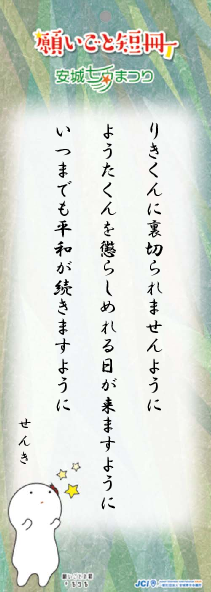 願いごと短冊
安城七夕まつり
りきくんに裏切られませんように
ようたくんを懲らしめれる日が来ますように
いつまでも平和が続きますように
せんき
JCI